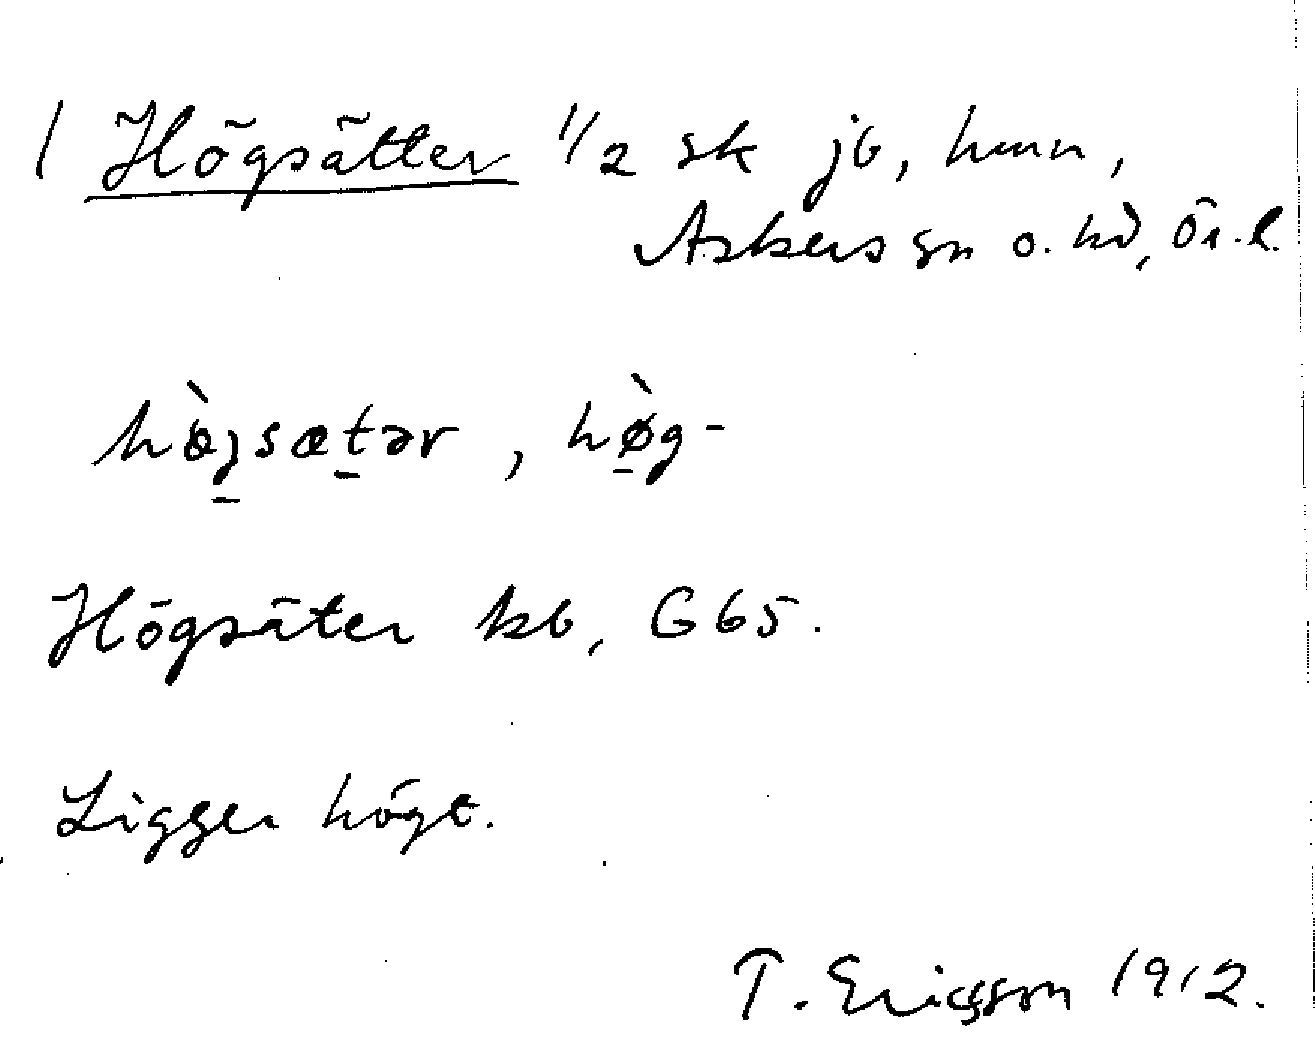 1 Högsätter 1/2 sk jb, hmn,
Askers sn o. hd, Ör. l.
hò̤jsætər, hø̀g-
Högsäter kb, G65.
Ligger högt.
T. Ericsson 1912.